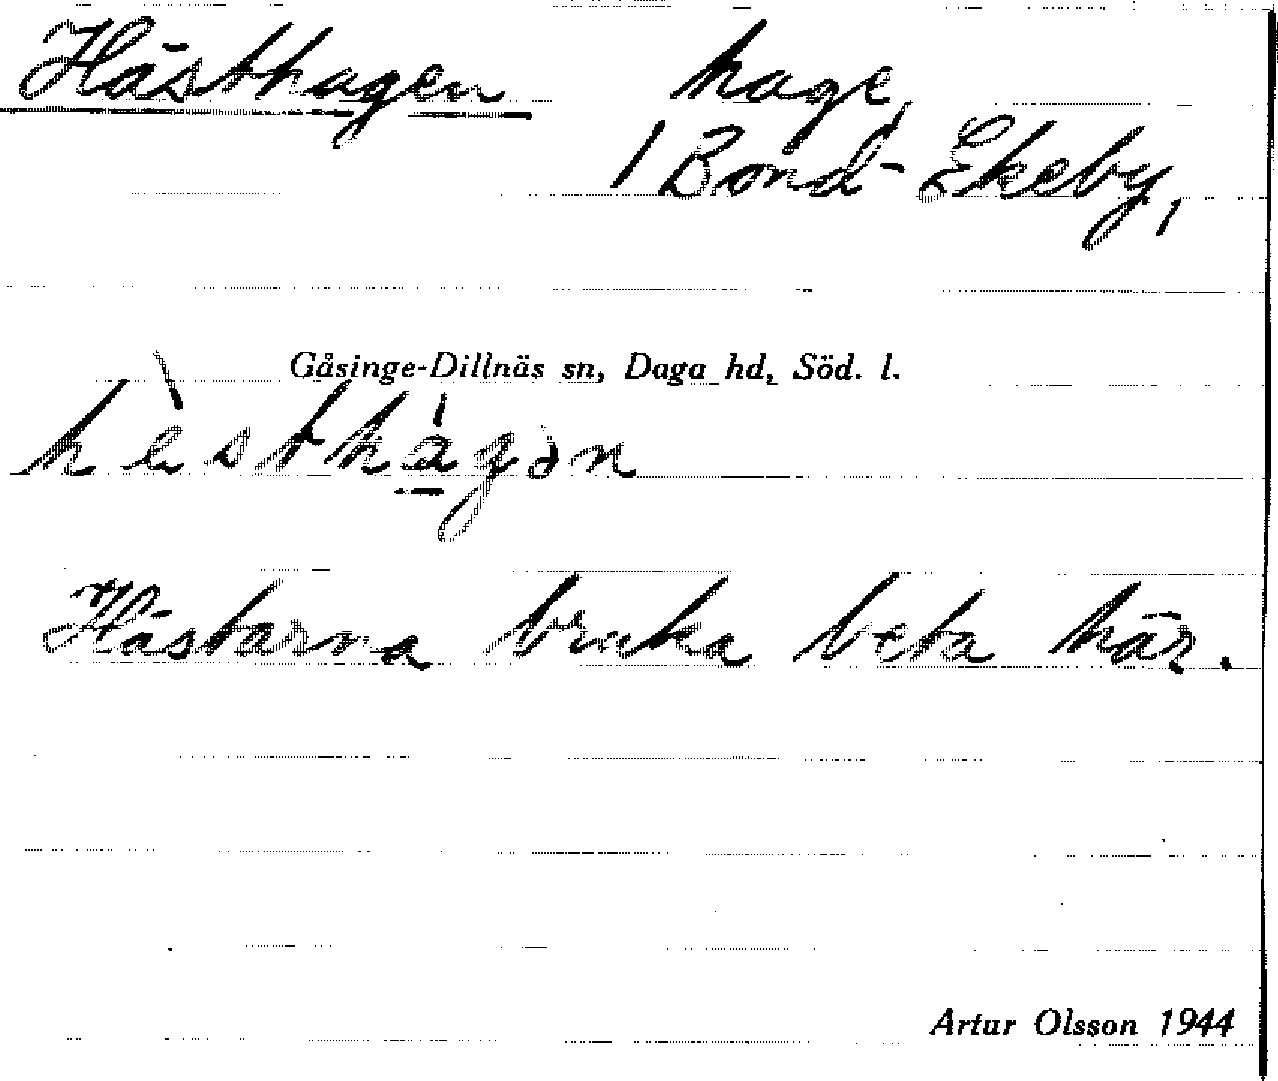 Hästhagen hage,
/ Bond-Ekeby,
Gåsinge-Dillnäs sn, Daga hd, Söd. l.
hὲsthágən
Hästarna bruka beta här.
Artur Olsson 1944